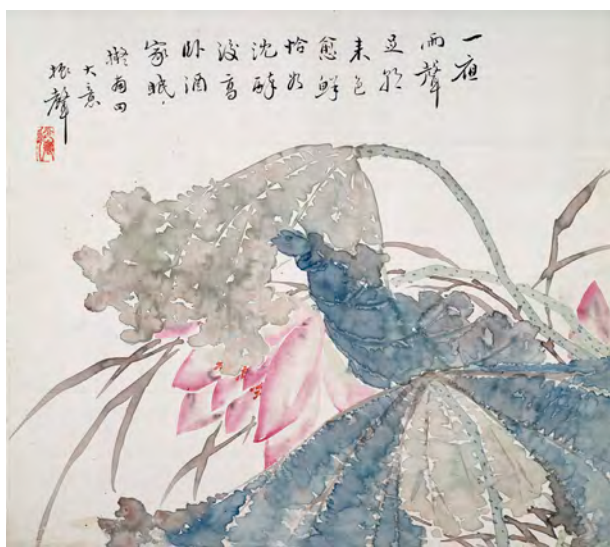 一夜
雨聲
足朝
来色
愈鮮
恰如
沈醉
後高
卧酒
家眠
擬南田
大意
振聲